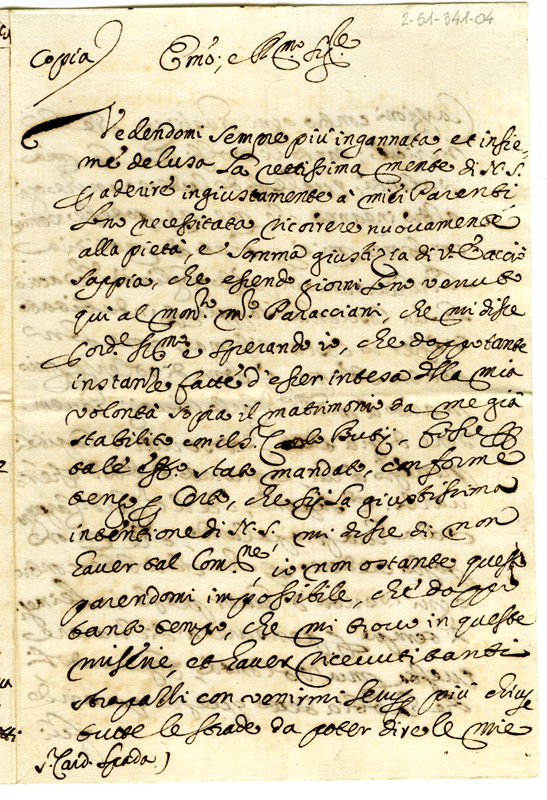 2-51-341-04
Copia
Emo; e Rmo Sig.re
Vedendomi sempre più ingannata, et insie-
me delusa la rettissima mente di N. S.
p aderire ingiustamente à miei Parenti,
sono necessitata ricorrere nuovamente
alla pietà, e somma giustizia di V. E. acciò
sappia, che essendo giorni sono venuto
qui al mon.ro m.r Paracciani, che mi disse
p ord.e e sperando io, che doppo tante
instanze fatte d'esser intesa della mia
volontà sopra il matrimonio da me già
stabilito col s. Carlo Buty, fosse p
tal eff.o stato mandato, conforme
tengo p certo, che sij la giustissima
intentione di N. S. mi disse di non
haver tal Com.ne io non ostante questo
parendomi impossibile, che doppo
tanto tempo, che mi trovo in queste
miserie, et haver ricevuti tanti
strapazzi con venirmi sempre più chiuse
tutte le strade da poter dire le mie
s.r Card. Spada